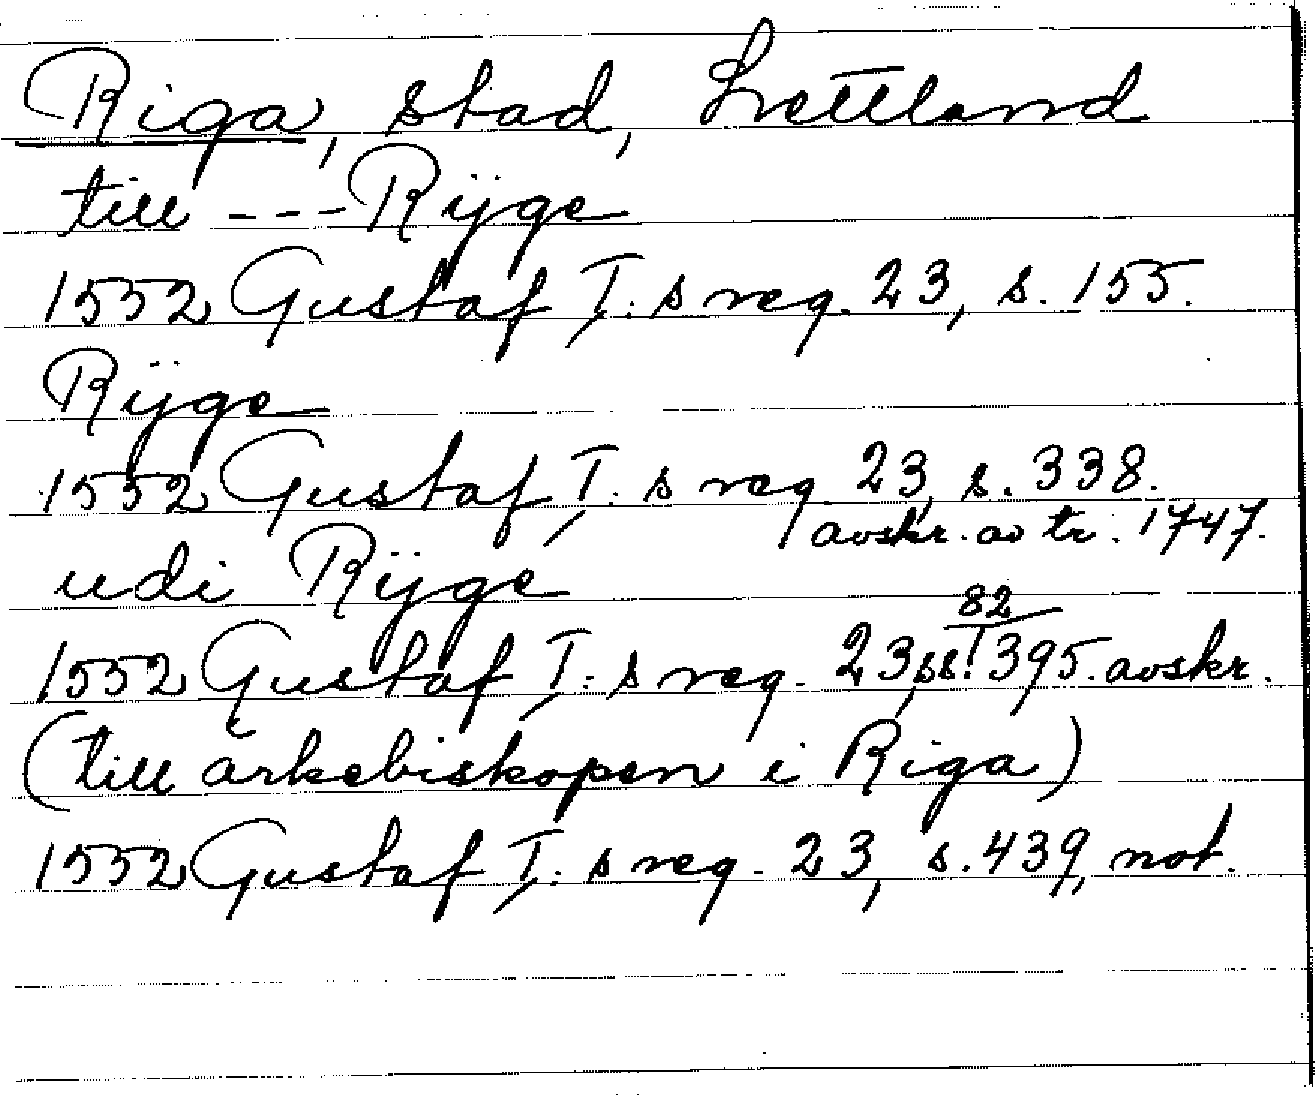 Riga, stad, Lettland
till --- Rÿge
1552 Gustaf I:s reg. 23, s. 155.
Rÿge
1552 Gustaf I:s reg. 23, s. 338.
avskr. av tr. 1747.
udi Rÿge
82
1552 Gustaf I:s reg. 23, s. 395. avskr.
(till ärkebiskopen i Riga)
1552 Gustaf I:s reg. 23, s. 439, not.